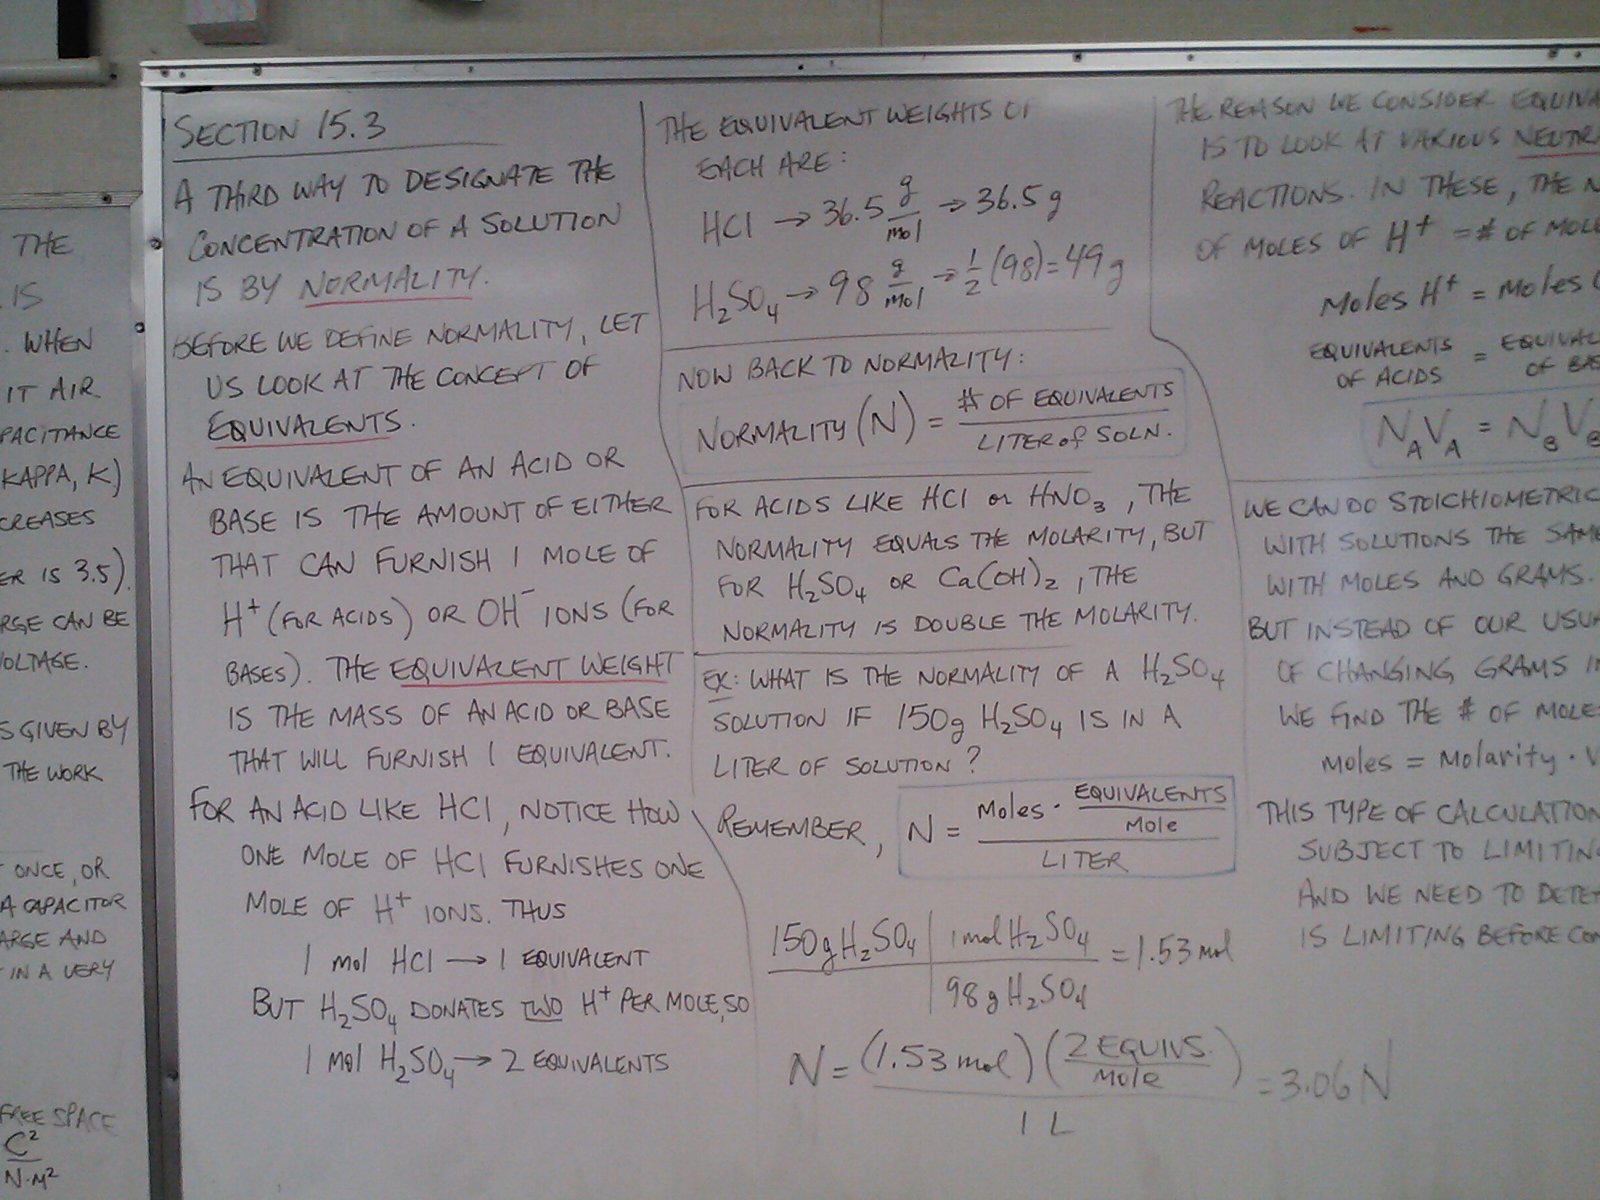 THE
IS
. WHEN
IT AIR
PACITANCE
KAPPA, K)
CREASES
ER IS 3.5).
RGE CAN BE
VOLTAGE.
S GIVEN BY
THE WORK
ONCE, OR
A CAPACITOR
ARGE AND
IN A VERY
FREE SPACE
C²
N·M²
SECTION 15.3
A THIRD WAY TO DESIGNATE THE
CONCENTRATION OF A SOLUTION
IS BY NORMALITY.
BEFORE WE DEFINE NORMALITY, LET
US LOOK AT THE CONCEPT OF
EQUIVALENTS.
AN EQUIVALENT OF AN ACID OR
BASE IS THE AMOUNT OF EITHER
THAT CAN FURNISH 1 MOLE OF
H⁺ (FOR ACIDS) OR OH⁻ IONS (FOR
BASES). THE EQUIVALENT WEIGHT
IS THE MASS OF AN ACID OR BASE
THAT WILL FURNISH 1 EQUIVALENT.
FOR AN ACID LIKE HCl, NOTICE HOW
ONE MOLE OF HCl FURNISHES ONE
MOLE OF H⁺ IONS. THUS
1 mol HCl → 1 EQUIVALENT
BUT H₂SO₄ DONATES TWO H⁺ PER MOLE, SO
1 mol H₂SO₄ → 2 EQUIVALENTS
THE EQUIVALENT WEIGHTS OF
EACH ARE:
HCl → 36.5 g/mol → 36.5 g
H₂SO₄ → 98 g/mol → 1/2 (98) = 49 g
NOW BACK TO NORMALITY:
NORMALITY (N) = # OF EQUIVALENTS / LITER of SOLN.
FOR ACIDS LIKE HCl or HNO₃, THE
NORMALITY EQUALS THE MOLARITY, BUT
FOR H₂SO₄ OR Ca(OH)₂, THE
NORMALITY IS DOUBLE THE MOLARITY.
EX: WHAT IS THE NORMALITY OF A H₂SO₄
SOLUTION IF 150g H₂SO₄ IS IN A
LITER OF SOLUTION?
REMEMBER, N = Moles · EQUIVALENTS/Mole / LITER
150g H₂SO₄ | 1 mol H₂SO₄ = 1.53 mol
98 g H₂SO₄
N = (1.53 mol) (2 EQUIVS./Mole) / 1 L = 3.06 N
THE REASON WE CONSIDER EQUIVA
IS TO LOOK AT VARIOUS NEUTR
REACTIONS. IN THESE, THE N
OF MOLES OF H⁺ = # OF MOLE
Moles H⁺ = Moles
EQUIVALENTS OF ACIDS = EQUIVAL OF BAS
N_A V_A = N_B V_B
WE CAN DO STOICHIOMETRIC
WITH SOLUTIONS THE SAME
WITH MOLES AND GRAMS.
BUT INSTEAD OF OUR USUA
OF CHANGING GRAMS I
WE FIND THE # OF MOLE
moles = Molarity · V
THIS TYPE OF CALCULATION
SUBJECT TO LIMITIN
AND WE NEED TO DETE
IS LIMITING BEFORE CON